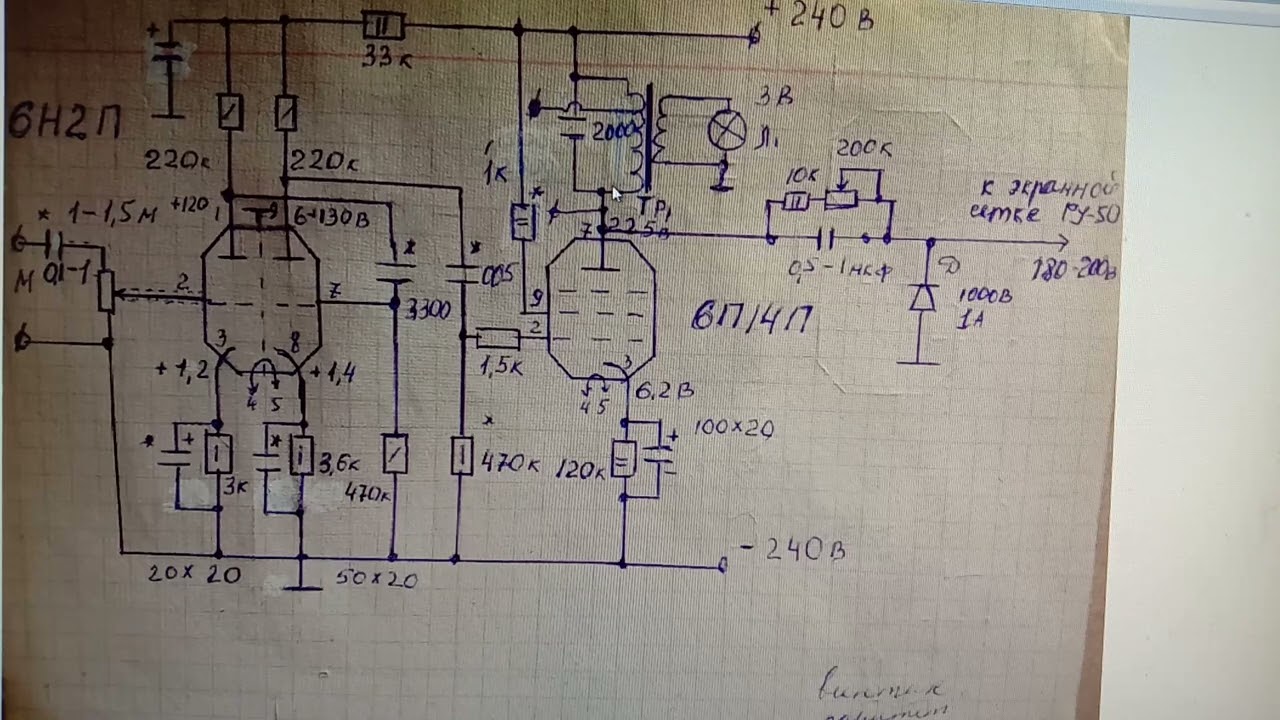 + 240 В
+
33 к
6Н2П
220к
220к
2000
3 В
Л₁
1к
*
200к
10к
к экранной
сетке ГУ-50
180-200в
* 1-1,5 м
+120
1
9
6
+130 В
0,1-1
М
2
7
3300
*
*
005
7
225в
ТР₁
0,5-1мкф
Д
1000В
1А
9
2
6П14П
1,5к
3
8
+1,2
+1,4
4 5
3
4 5
6,2 В
100×20
+
*
+
*
*
3к
3,6к
470к
470к
120к
- 240 В
20 × 20
50 × 20
винтик